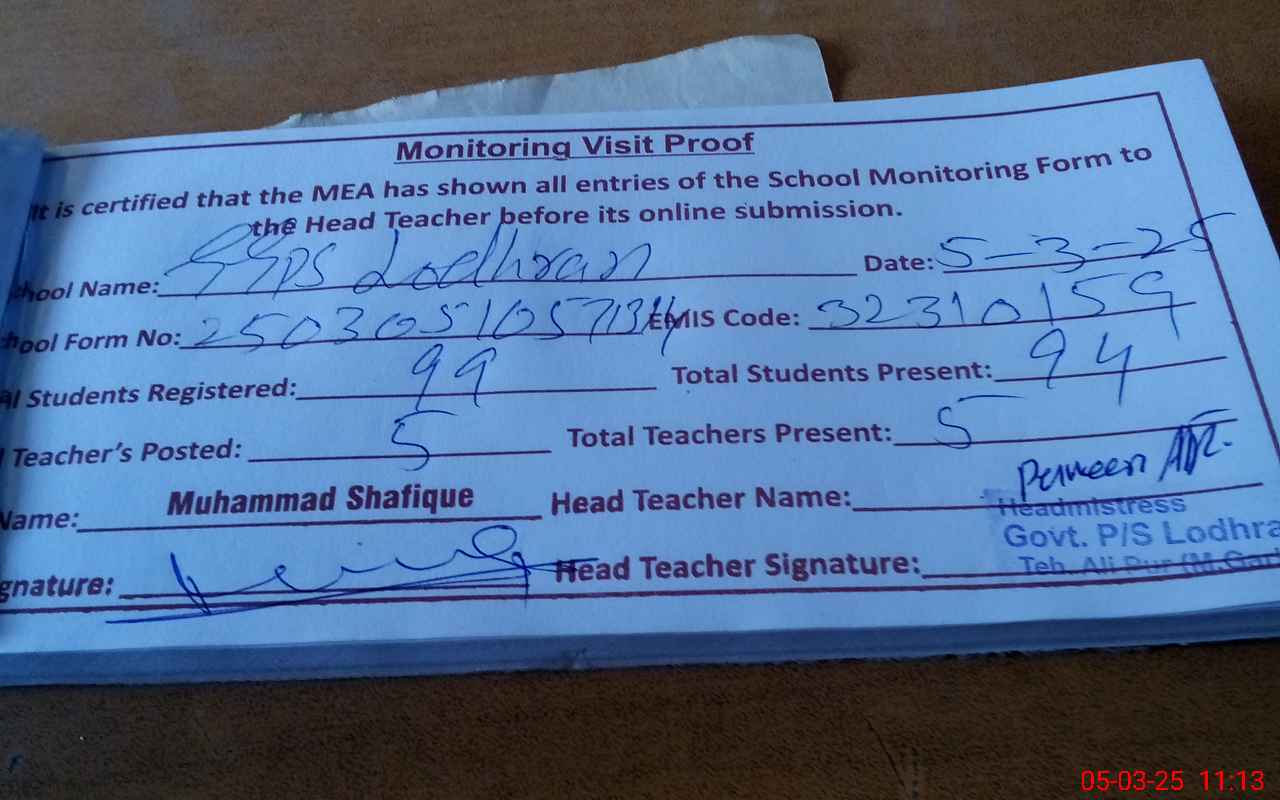 Monitoring Visit Proof
It is certified that the MEA has shown all entries of the School Monitoring Form to
the Head Teacher before its online submission.
hool Name: GGPS Lodhran Date: 5-3-25
hool Form No: EMIS Code: 32310159
al Students Registered: 99 Total Students Present: 94
Teacher's Posted: 5 Total Teachers Present: 5
Name: Muhammad Shafique Head Teacher Name: Perveen
Headmistress
Govt. P/S Lodhra
gnature: Head Teacher Signature: Teh. Ali Pur (M.Gar
05-03-25 11:13